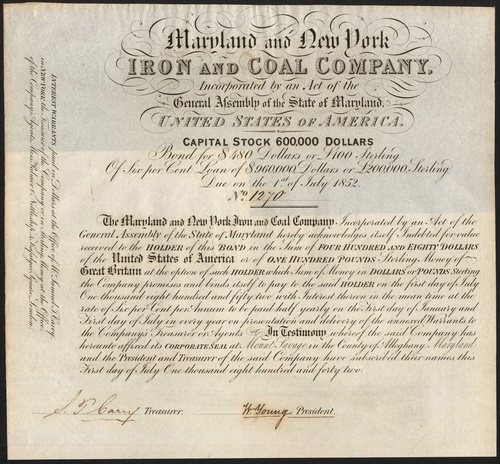 Maryland and New York
IRON AND COAL COMPANY.
Incorporated by an Act of the
General Assembly of the State of Maryland.
UNITED STATES OF AMERICA.
CAPITAL STOCK 600,000 DOLLARS
Bond for $480 Dollars or £100 Sterling
Of Six per Cent Loan of $960,000 Dollars or £200,000 Sterling
Due on the 1st of July 1852.
No. 1270
The Maryland and New York Iron and Coal Company, Incorporated by an Act of the
General Assembly of the State of Maryland hereby acknowledges itself Indebted for value
received to the HOLDER of this BOND in the Sum of FOUR HUNDRED AND EIGHTY DOLLARS
of the United States of America or of ONE HUNDRED POUNDS Sterling Money of
Great Britain at the option of such HOLDER which Sum of Money in DOLLARS or POUNDS Sterling
the Company promises and binds itself to pay to the said HOLDER on the first day of July
One thousand eight hundred and fifty two with Interest thereon in the mean time at the
rate of Six per Cent per Annum to be paid half yearly on the first day of January and
First day of July in every year on presentation and delivery of the annexed Warrants to
the Company's Treasurer or Agents. In Testimony whereof the said Company has
hereunto affixed its CORPORATE SEAL at Mount Savage in the County of Alleghany, Maryland
and the President and Treasurer of the said Company have subscribed their names this
First day of July One thousand eight hundred and forty two.
Treasurer.
W Young President.
INTEREST WARRANTS paid in Dollars at the Office of
in NEW YORK, the Treasurer of the Company or in Sterling Money at the Office
of the Company's Agents,